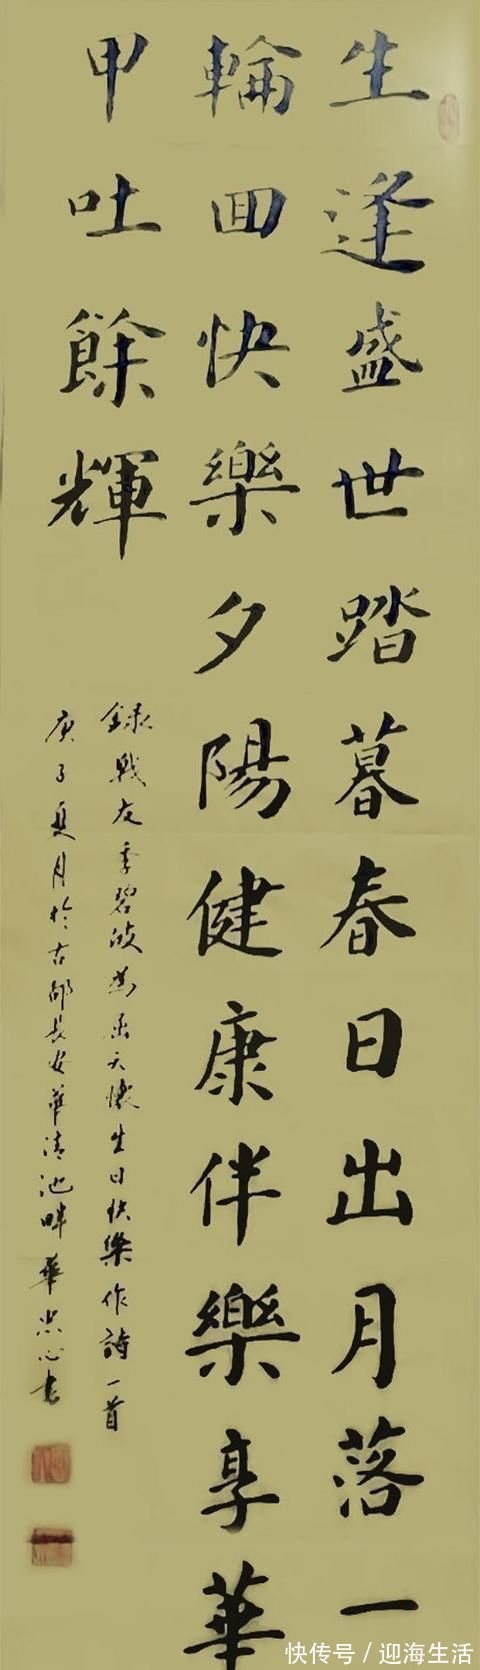 生逢盛世踏暮春日出月落一
輪回快樂夕陽健康伴樂享華
甲吐餘輝
錄戰友季碧波為岳天懷生日快樂作詩一首
庚子夏月於古都長安華清池畔華忠心書
快传号/迎海生活